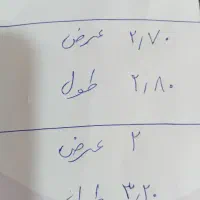 عرض ۲٫۷۰
طول ۲٫۸۰
عرض ۲
طول ۳٫۲۰